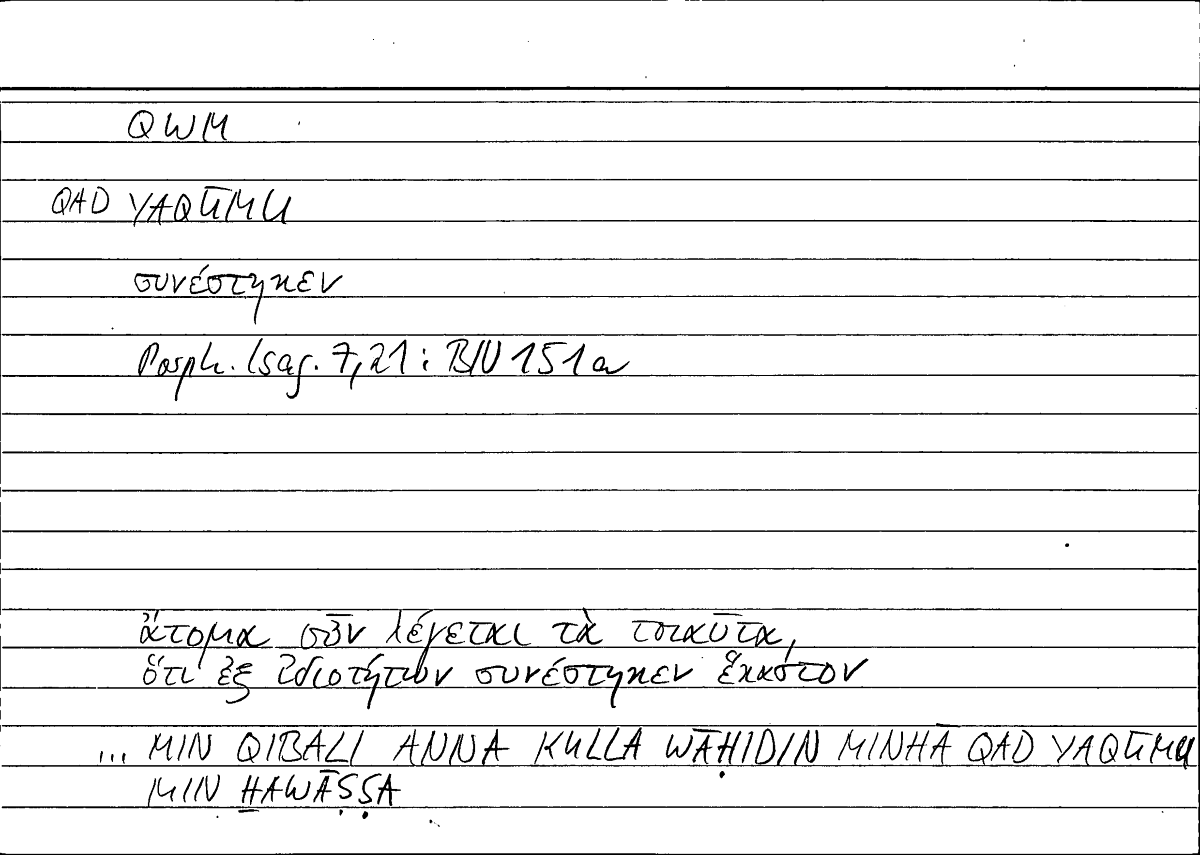 QWM
QAD YAQŪMU
συνέστηκεν
Porph. Isag. 7,21 : BIV 151a
ἄτομα οὖν λέγεται τὰ τοιαῦτα,
ὅτι ἐξ ἰδιοτήτων συνέστηκεν ἕκαστον
... MIN QIBALI ANNA KULLA WĀḤIDIN MINHĀ QAD YAQŪMU
MIN H̱AWĀṢṢA